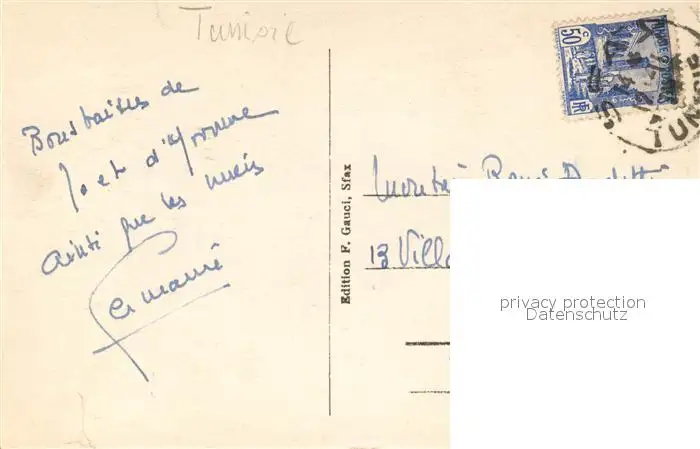 Tunisie
50c
RF
TUN
Bons baisers de
Jo et d'Yvonne
Ainsi que les miens
Germaine
Edition F. Gauci, Sfax
13 Villa
privacy protection
Datenschutz